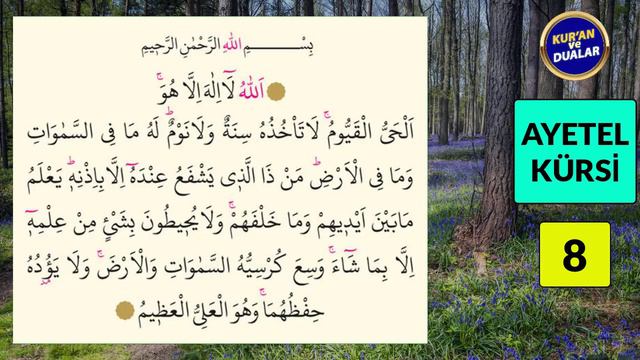 بِسْمِ اللّٰهِ الرَّحْمٰنِ الرَّحٖيمِ
اَللّٰهُ لَٓا اِلٰهَ اِلَّا هُوَۚ
اَلْحَيُّ الْقَيُّومُۚ لَا تَأْخُذُهُ سِنَةٌ وَلَا نَوْمٌۜ لَهُ مَا فِى السَّمٰوَاتِ
وَمَا فِى الْاَرْضِۜ مَنْ ذَا الَّذٖى يَشْفَعُ عِنْدَهُٓ اِلَّا بِاِذْنِهٖۜ يَعْلَمُ
مَا بَيْنَ اَيْدٖيهِمْ وَمَا خَلْفَهُمْۚ وَلَا يُحٖيطُونَ بِشَىْءٍ مِنْ عِلْمِهٖٓ
اِلَّا بِمَا شَٓاءَۚ وَسِعَ كُرْسِيُّهُ السَّمٰوَاتِ وَالْاَرْضَۚ وَلَا يَؤُ۫دُهُ
حِفْظُهُمَاۚ وَهُوَ الْعَلِىُّ الْعَظٖيمُ
KUR'AN
ve
DUALAR
AYETEL
KÜRSİ
8